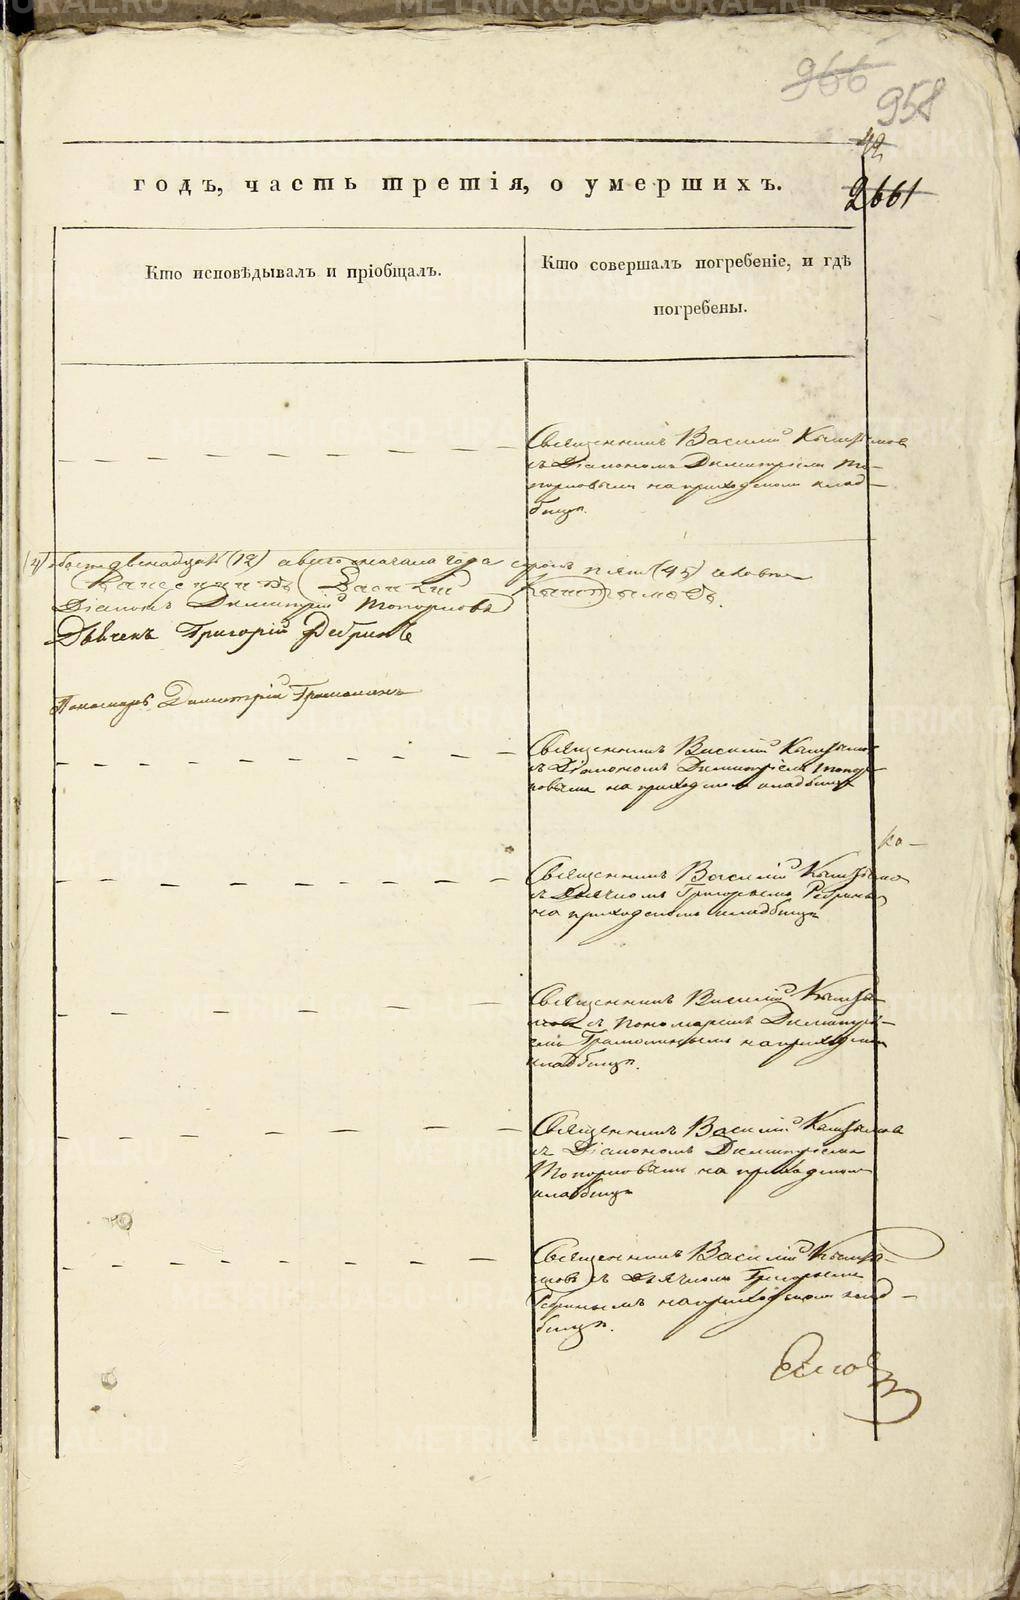 966
958
42
2661
годъ, часть третія, о умершихъ.
Кто исповѣдывалъ и пріобщалъ.
Кто совершалъ погребеніе, и гдѣ
погребены.
Священникъ Василій
съ Діакономъ Димитріемъ То-
порковымъ на приходскомъ клад-
бищѣ.
двенадцать (12) а всего сначала года сорокъ пять (45) человекъ
Священникъ Василій
Діаконъ Димитрій Топорковъ
Дьячекъ Григорій Ребринъ
Пономарь Димитрій Грамолинъ
Священникъ Василій
съ Діакономъ Димитріемъ Топор-
ковымъ на приходскомъ кладбищѣ
ко-
Священникъ Василій
съ Дьячкомъ Григорьемъ Ребринымъ
на приходскомъ кладбищѣ
Священникъ Василій
съ пономаремъ Димитрі-
емъ Грамолинымъ на приходскомъ
кладбищѣ.
Священникъ Василій
съ Діакономъ Димитріемъ
Топорковымъ на приходскомъ
кладбищѣ
Священникъ Василій
съ Дьячкомъ Григорьемъ
Ребринымъ на приходскомъ клад-
бищѣ.
METRIKI.GASO-URAL.RU